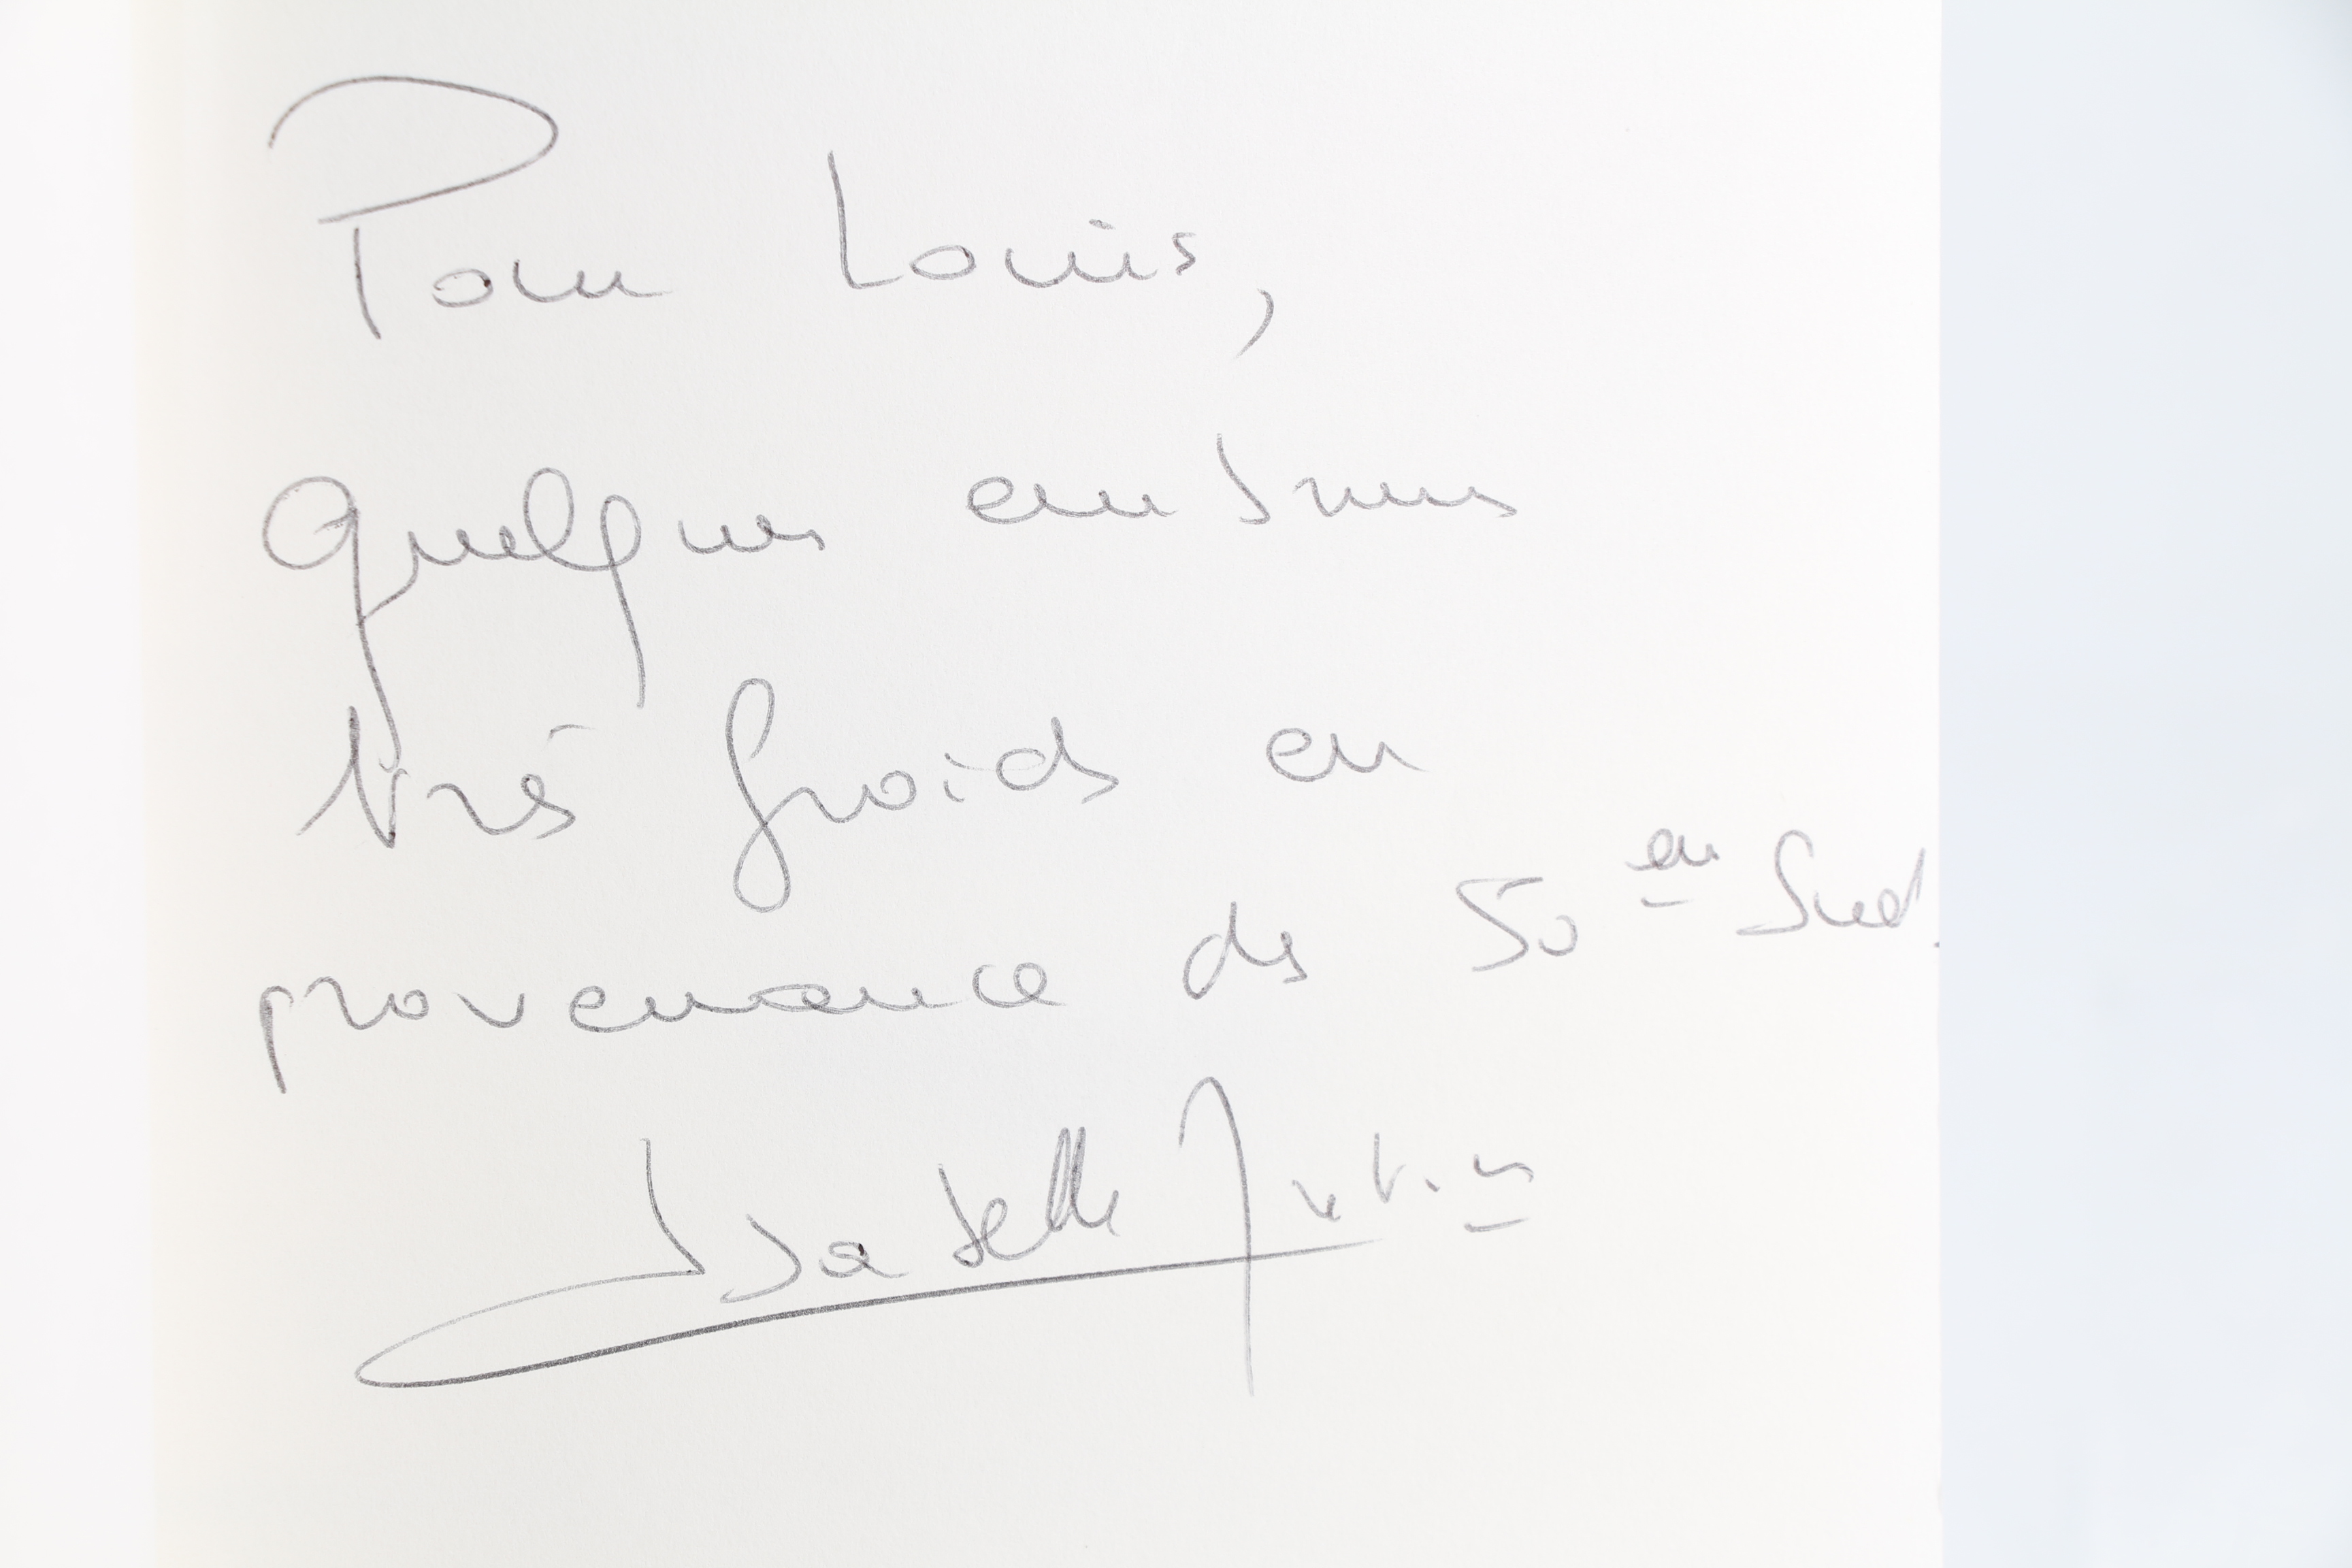 Pour Louis,
Quelques embruns
très froids en
provenance des 50èm Sud.
Isabelle Autissier